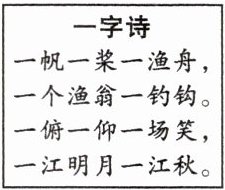 一字诗
一帆一桨一渔舟，
一个渔翁一钓钩。
一俯一仰一场笑，
一江明月一江秋。